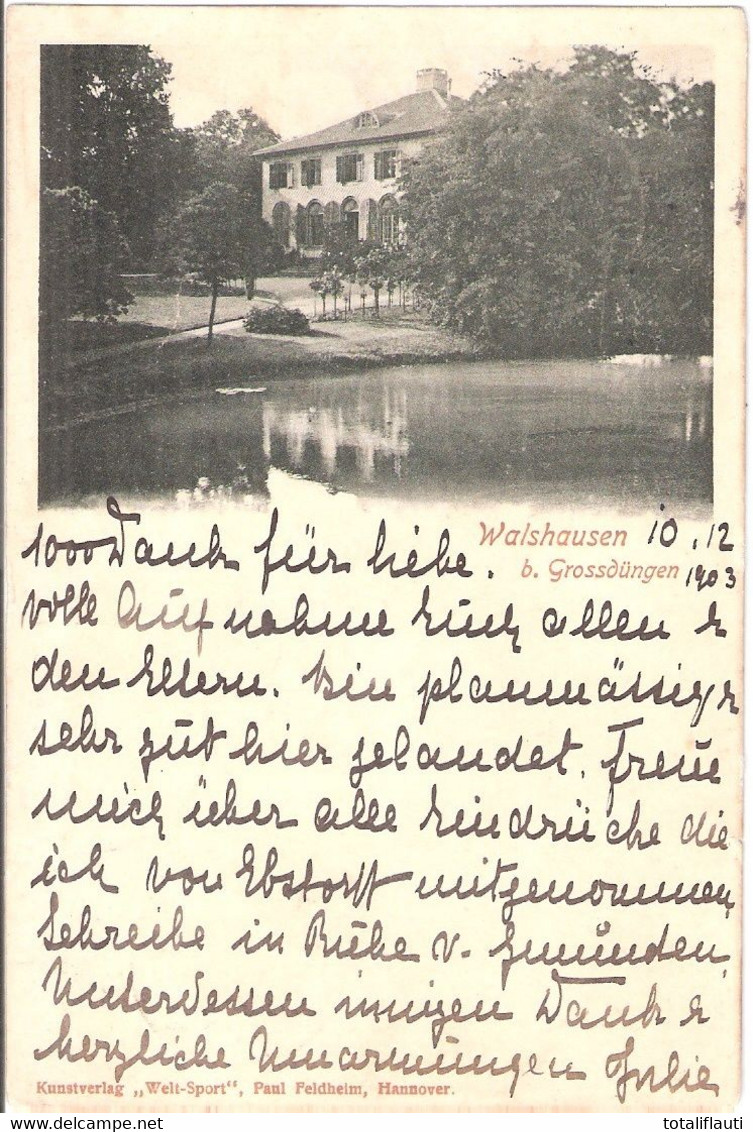 Walshausen 10.12
b. Grossdüngen 1903
1000 Dank für liebe.
volle Aufnahme Euch allen &
den Eltern. Bin planmässig &
sehr gut hier gelandet. Freue
mich über alle Eindrücke die
ich von Ebstorff mitgenommen
Schreibe in Ruhe v. Gmünden.
Unterdessen innigen Dank &
herzliche Umarmungen Julie
Kunstverlag „Welt-Sport“, Paul Feldheim, Hannover.
totaliflauti